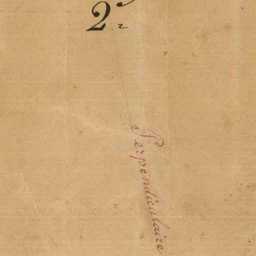 2.
Perpendiculaire